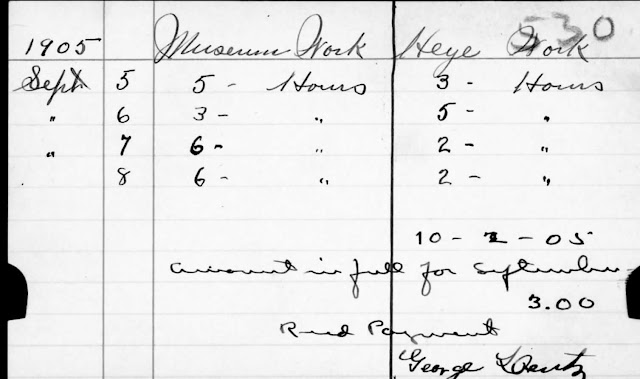 530
1905 Museum Work Heye Work
Sept 5 5 - Hours 3 - Hours
" 6 3 - " 5 - "
" 7 6 - " 2 - "
8 6 - " 2 - "
10 - 2 - 05
Amount in full for September
3.00
Recd Payment
George